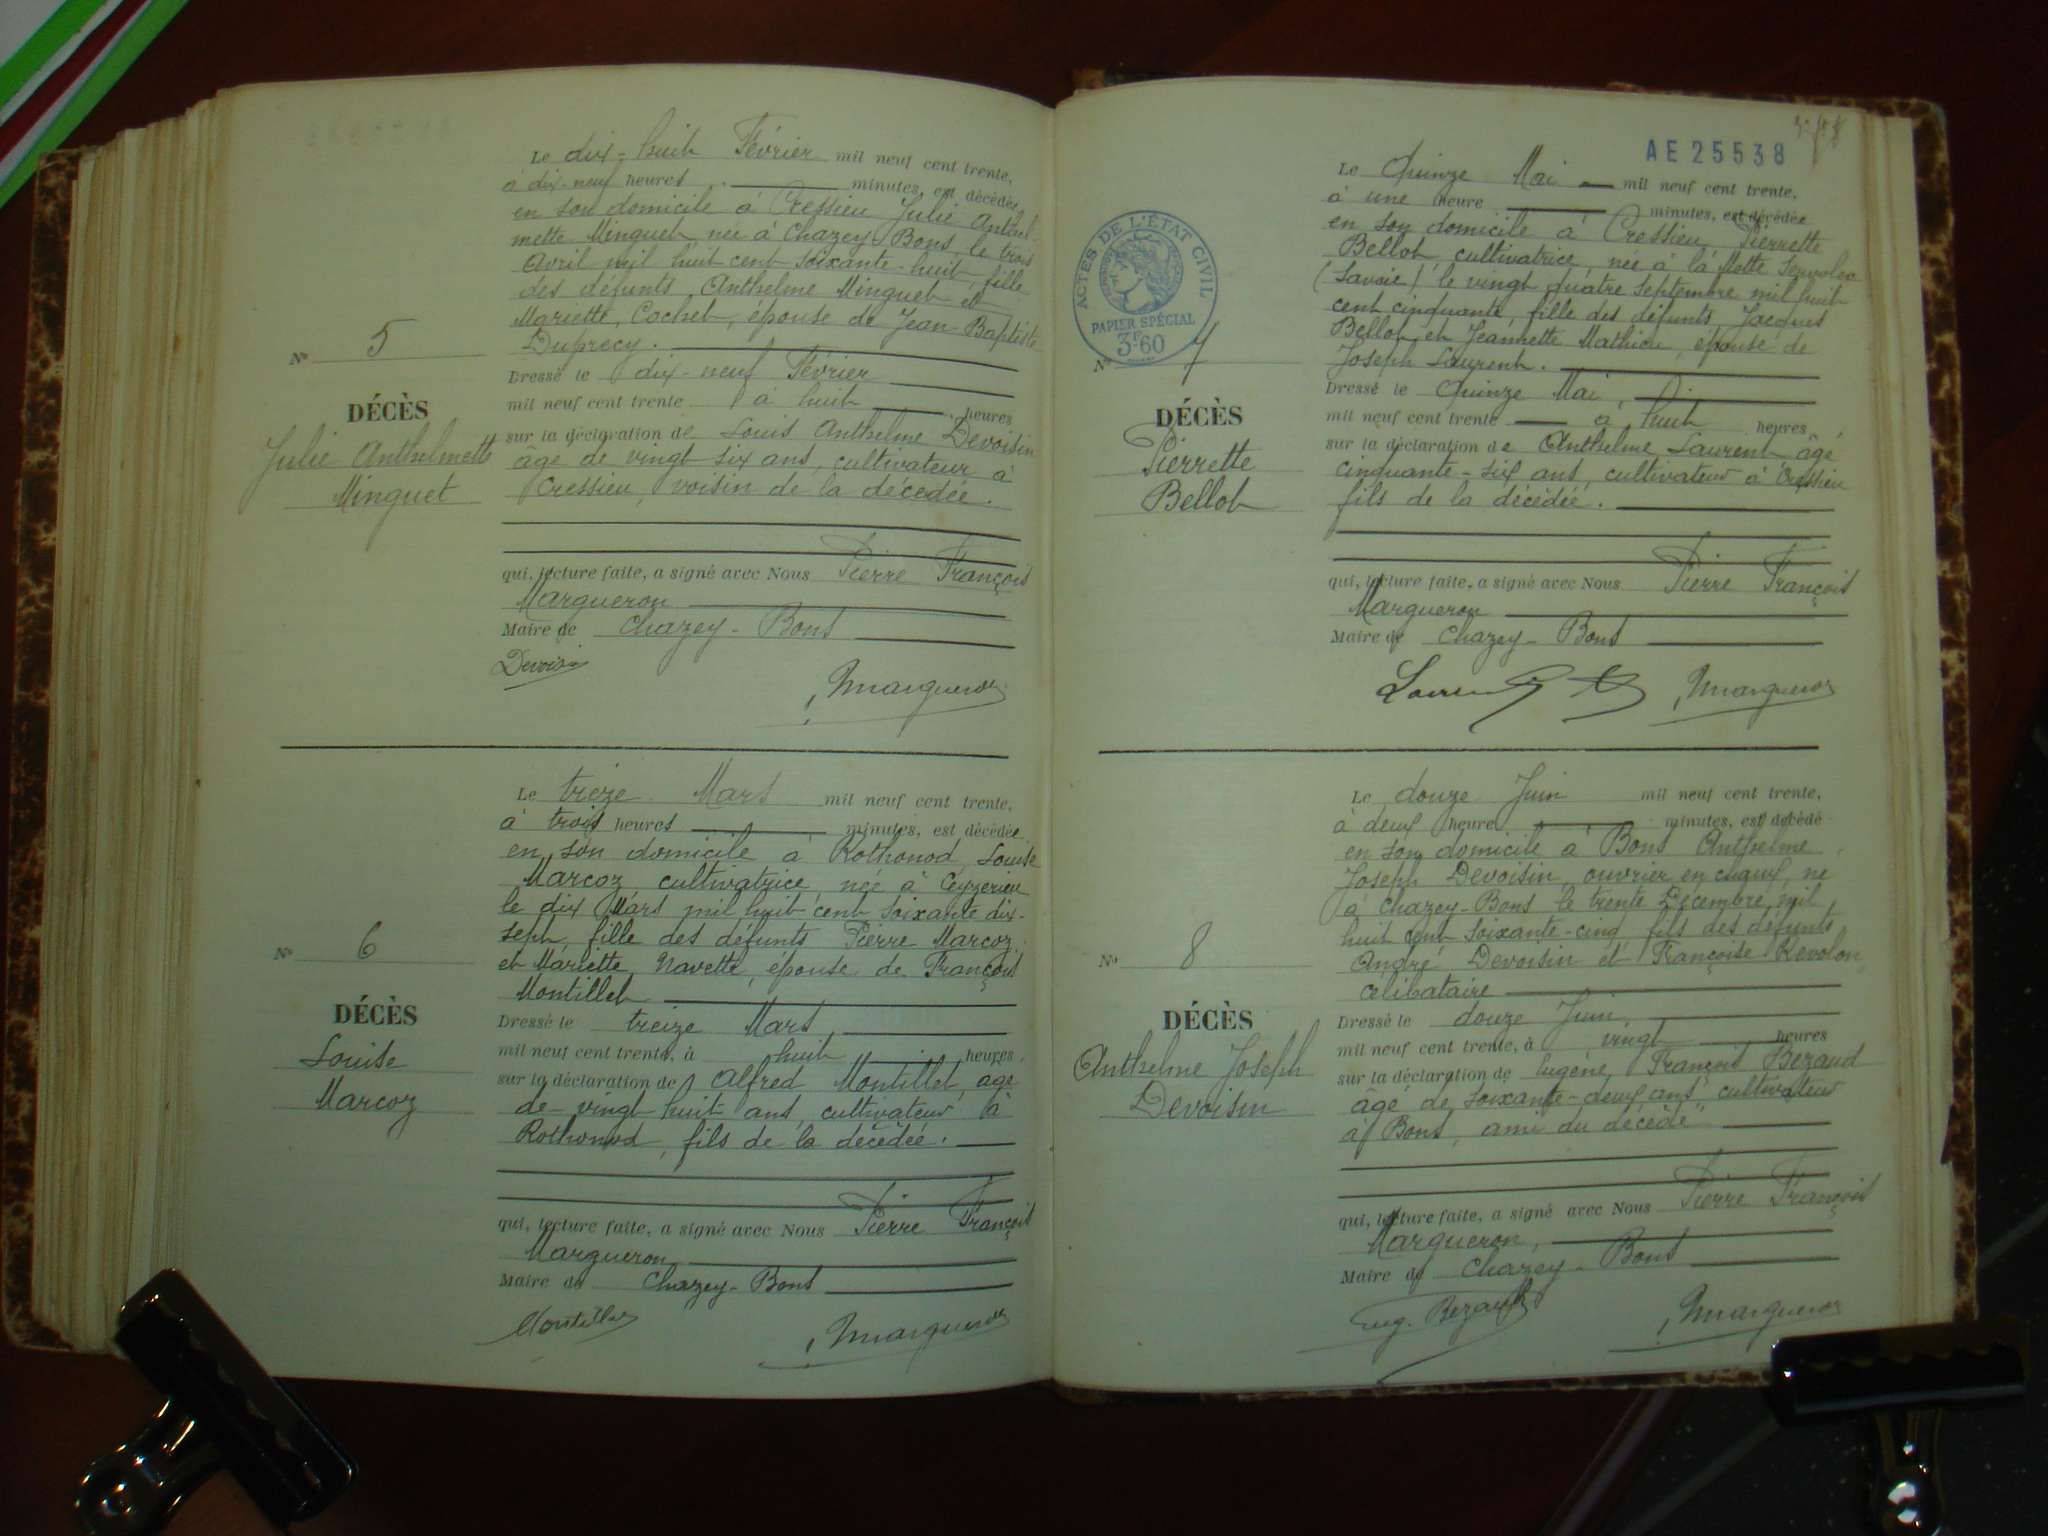 Le dix-huit Février mil neuf cent trente,
à dix-neuf heures minutes, est décédée
en son domicile à Cressieu Julie Anthel-
mette Minguet née à Chazey-Bons le trois
Avril mil huit cent soixante-huit, fille
des défunts Anthelme Minguet et
Mariette Cochet, épouse de Jean-Baptiste
Duprecy.
Nº 5
Dressé le dix-neuf Février
mil neuf cent trente à huit heures
DÉCÈS
sur la déclaration de Louis Anthelme Devoisin
Julie Anthelmette
âgé de vingt six ans, cultivateur à
Minguet
Cressieu, voisin de la décédée.
qui, lecture faite, a signé avec Nous Pierre François
Margueron
Maire de Chazey-Bons
Devoisin
Margueron
Le treize Mars mil neuf cent trente,
à trois heures minutes, est décédée
en son domicile à Rothonod Louise
Marcoz cultivatrice, née à Ceyzerieu
le dix Mars mil huit cent soixante dix-
sept, fille des défunts Pierre Marcoz
Nº 6
et Mariette Navette, épouse de François
Montillet
DÉCÈS
Dressé le treize Mars
mil neuf cent trente, à huit heures
Louise
sur la déclaration de Alfred Montillet, âgé
Marcoz
de vingt huit ans, cultivateur à
Rothonod, fils de la décédée.
qui, lecture faite, a signé avec Nous Pierre François
Margueron
Maire de Chazey-Bons
Montillet
Margueron
AE 25538
Le Quinze Mai mil neuf cent trente,
à une heure minutes, est décédée
en son domicile à Cressieu Pierrette
Bellot, cultivatrice, née à la Motte Servolex
(Savoie) le vingt quatre Septembre mil huit
cent cinquante, fille des défunts Jacques
Bellot et Jeannette Mathieu, épouse de
Joseph Laurent.
ACTES DE L'ÉTAT CIVIL
PAPIER SPÉCIAL
3F60
Nº 7
Dressé le Quinze Mai,
DÉCÈS
mil neuf cent trente à huit heures
sur la déclaration de Anthelme Laurent âgé
Pierrette
cinquante-six ans, cultivateur à Cressieu
Bellot
fils de la décédée.
qui, lecture faite, a signé avec Nous Pierre François
Margueron
Maire de Chazey-Bons
Laurent
Margueron
Le douze Juin mil neuf cent trente,
à deux heure minutes, est décédé
en son domicile à Bons Anthelme
Joseph Devoisin, ouvrier en chauf, né
à Chazey-Bons le trente Décembre mil
huit cent soixante-cinq fils des défunts
Nº 8
André Devoisin et Françoise Revolon,
célibataire
DÉCÈS
Dressé le douze Juin
mil neuf cent trente, à vingt heures
Anthelme Joseph
sur la déclaration de Eugène François Bezaud
Devoisin
âgé de soixante-deux ans, cultivateur
à Bons, ami du décédé
qui, lecture faite, a signé avec Nous Pierre François
Margueron,
Maire de Chazey-Bons
Eug. Bezaud
Margueron